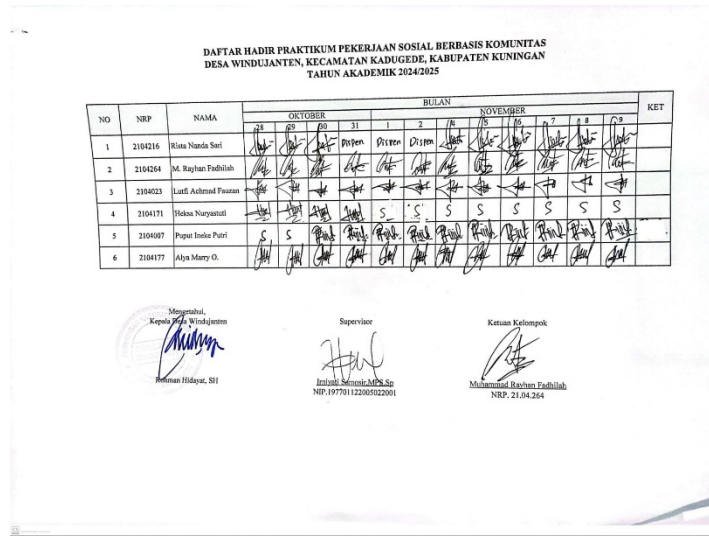 DAFTAR HADIR PRAKTIKUM PEKERJAAN SOSIAL BERBASIS KOMUNITAS
DESA WINDUJANTEN, KECAMATAN KADUGEDE, KABUPATEN KUNINGAN
TAHUN AKADEMIK 2024/2025
NO NRP NAMA BULAN KET
OKTOBER NOVEMBER
28 29 30 31 1 2 4 5 6 7 8 9
1 2104216 Rista Nanda Sari Dispen Dispen Dispen
2 2104264 M. Rayhan Fadhilah
3 2104023 Lutfi Achmad Fauzan
4 2104171 Heksa Nuryastuti S S S S S S S S
5 2104007 Puput Ineke Putri S S
6 2104177 Alya Marry O.
Mengetahui,
Kepala Desa Windujanten Supervisor Ketuan Kelompok
Rohman Hidayat, SH Irniyati Samosir,MPS.Sp Muhammad Rayhan Fadhilah
NIP.197701122005022001 NRP. 21.04.264